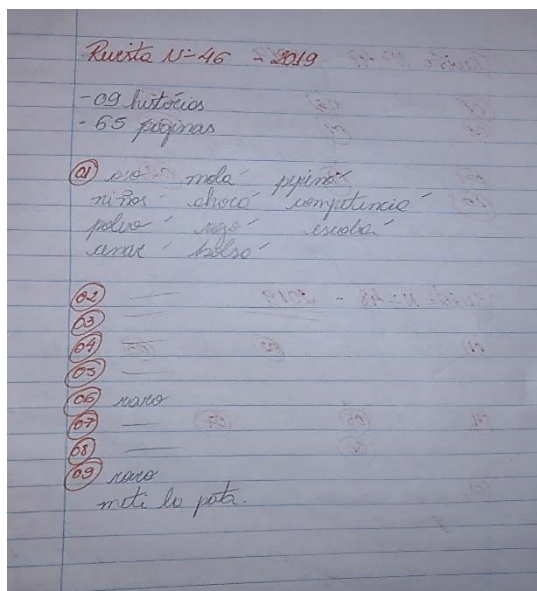 Revista Nº 46 - 2019
- 09 histórias
- 65 páginas
01 oso mola pepino
niños choco competencia
polvo rojo escoba
anar bolso
02 —
03 —
04 —
05 —
06 raro
07 —
08 —
09 raro
metí la pata.